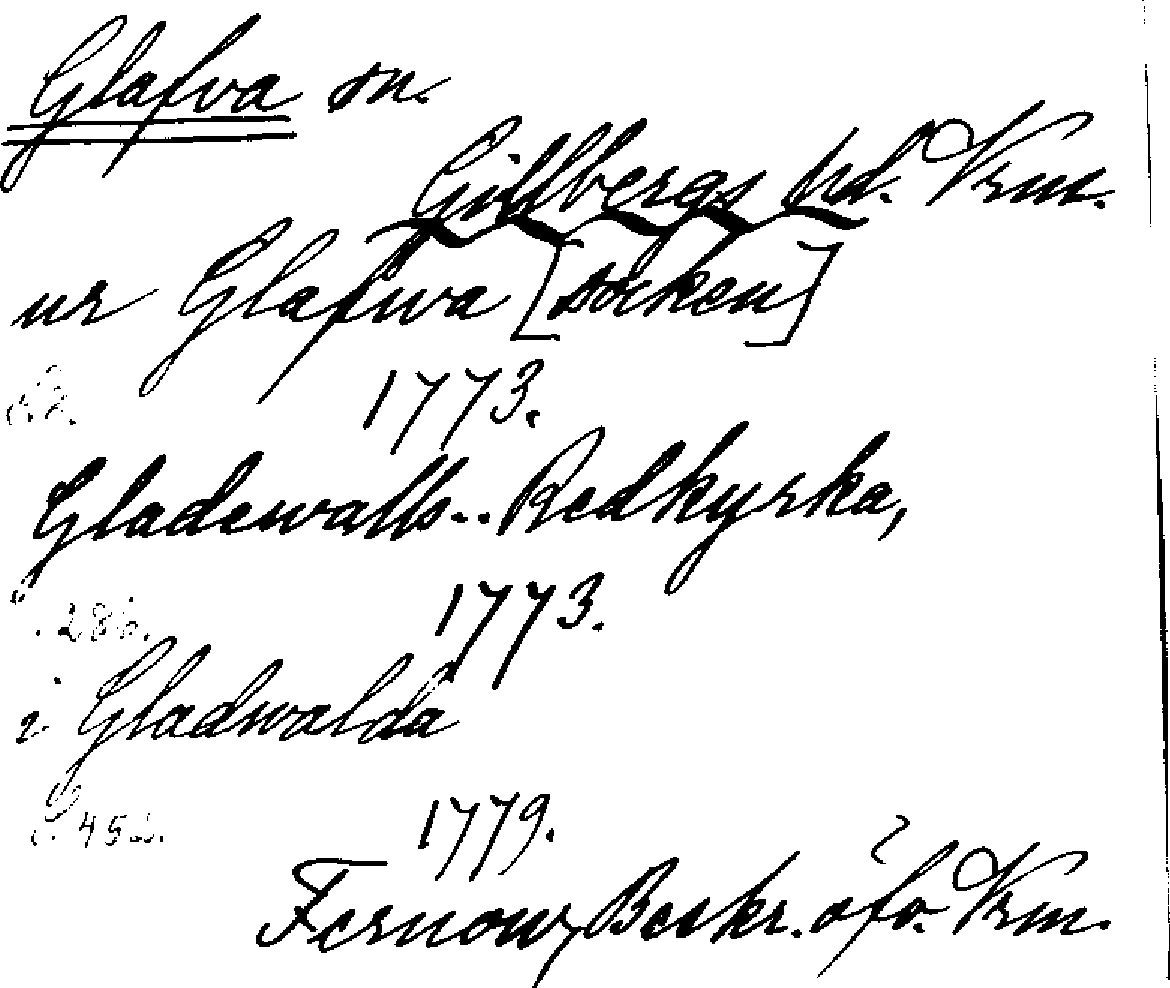 Glafva sn.
Gillbergs hd. Vrm.
ur Glafwa [socken]
1773.
Gladewalls-Redkyrka,
286. 1773.
i Gladwalda
S. 452. 1779.
Fernow, Beskr. öfv. Vrm.